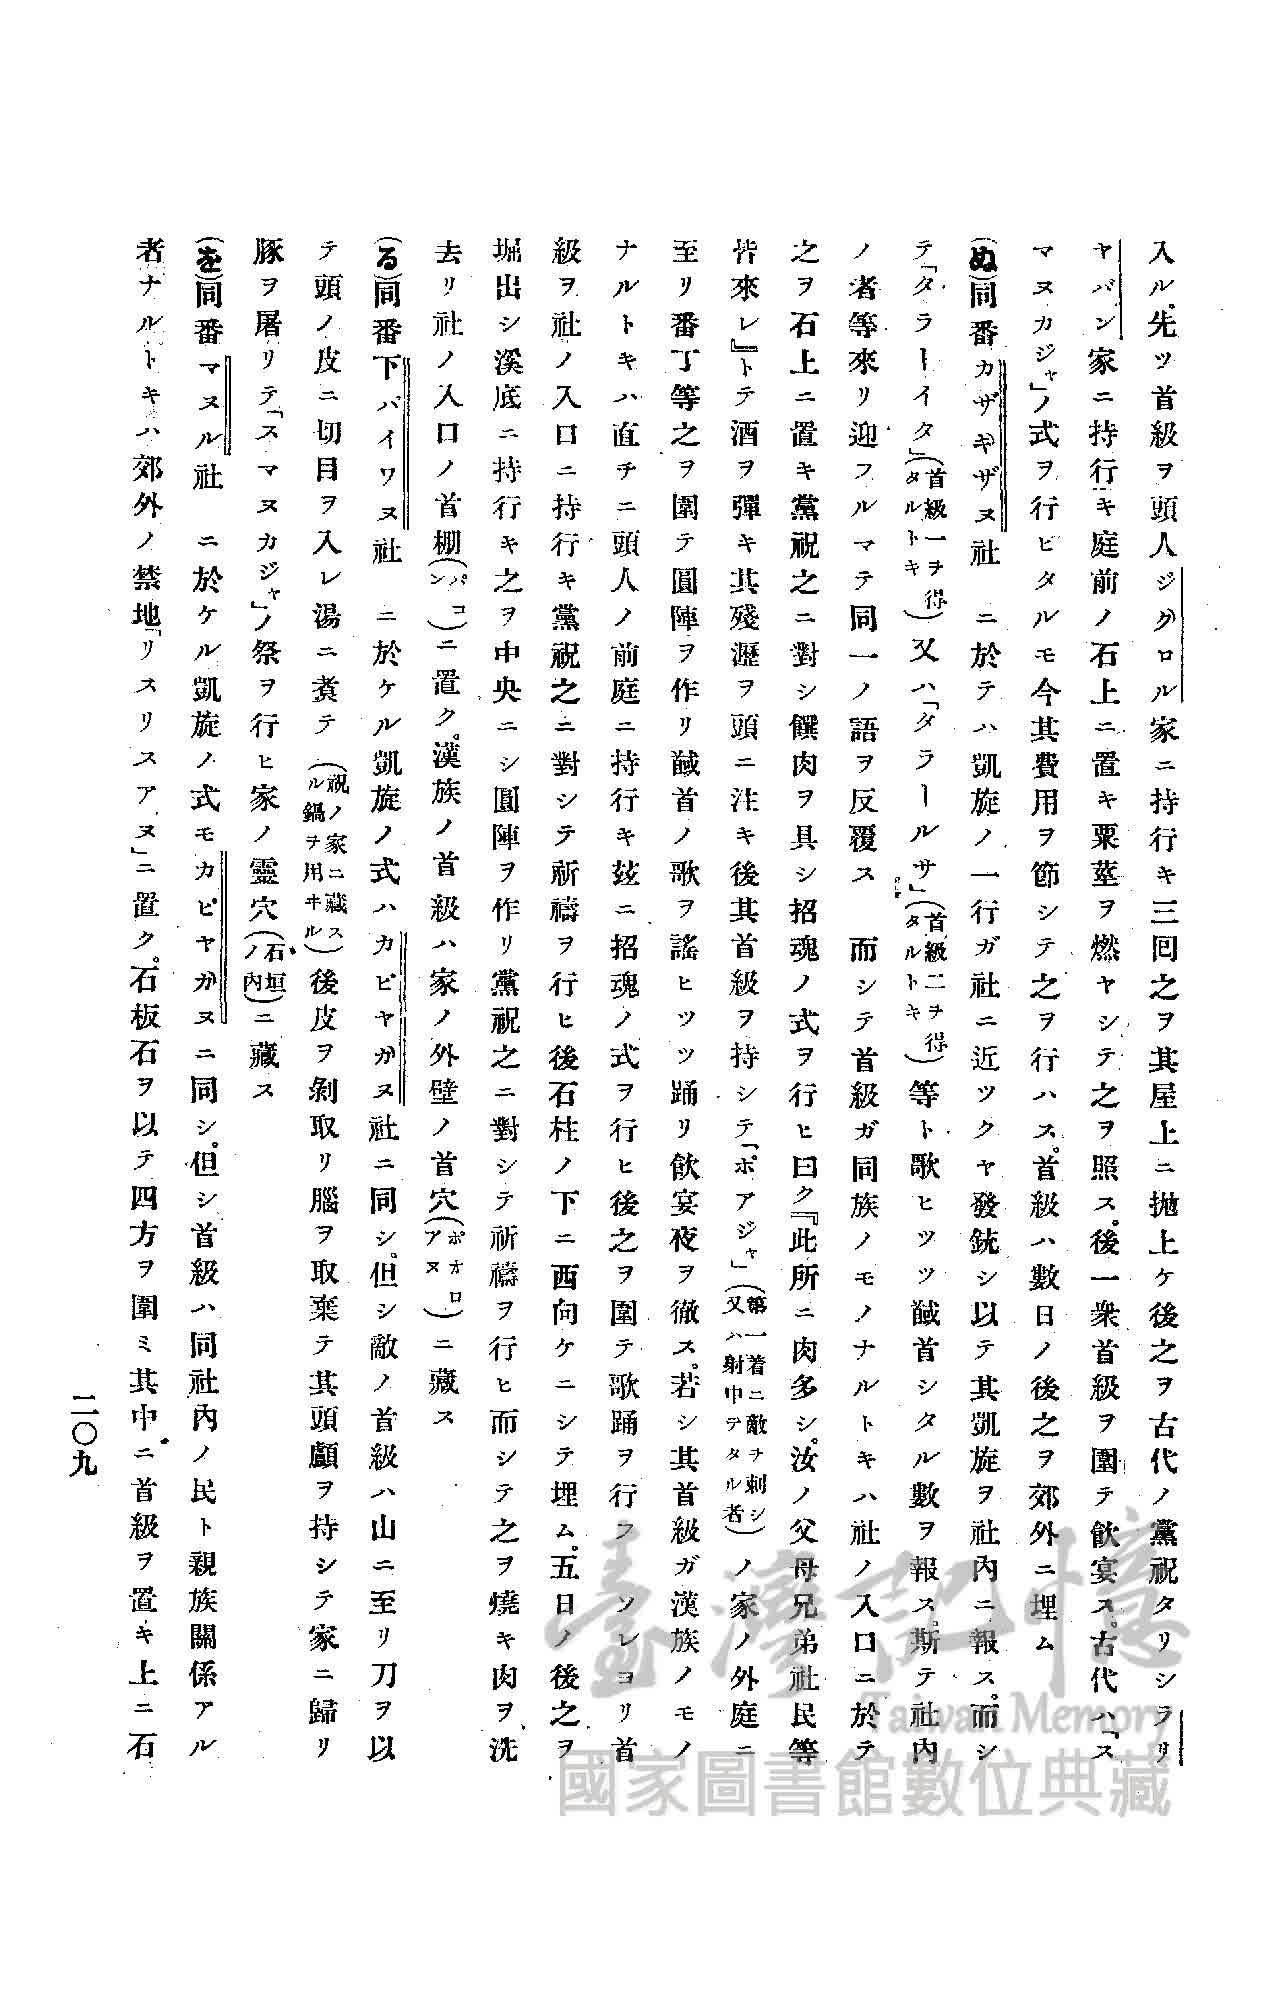 入ル。先ツ首級ヲ頭人ジグロル家ニ持行キ三囘之ヲ其屋上ニ拋上ケ後之ヲ古代ノ黨祝タリシラリ
ヤバン家ニ持行キ庭前ノ石上ニ置キ粟莖ヲ燃ヤシテ之ヲ照ス。後一衆首級ヲ圍テ飮宴ス。古代ハ「ス
マヌカジャ」ノ式ヲ行ビタルモ今其費用ヲ節シテ之ヲ行ハス。首級ハ數日ノ後之ヲ郊外ニ埋ム
(ぬ)同番カザギザヌ社　ニ於テハ凱旋ノ一行ガ社ニ近ツクヤ發銃シ以テ其凱旋ヲ社内ニ報ス。而シ
テ「タラーイタ」(首級一ヲ得タルトキ)又ハ「タラールサ」(首級二ヲ得タルトキ)等ト歌ヒツツ馘首シタル數ヲ報ス。斯テ社内
ノ者等來リ迎フルマテ同一ノ語ヲ反覆ス　而シテ首級ガ同族ノモノナルトキハ社ノ入口ニ於テ
之ヲ石上ニ置キ黨祝之ニ對シ饌肉ヲ具シ招魂ノ式ヲ行ヒ曰ク『此所ニ肉多シ。汝ノ父母兄弟社民等
皆來レ』トテ酒ヲ彈キ其殘瀝ヲ頭ニ注キ後其首級ヲ持シテ「ポアジャ」(第一着ニ敵ヲ刺シ又ハ射中テタル者)ノ家ノ外庭ニ
至リ番丁等之ヲ圍テ圓陣ヲ作リ馘首ノ歌ヲ謠ヒツツ踊リ飮宴夜ヲ徹ス。若シ其首級ガ漢族ノモノ
ナルトキハ直チニ頭人ノ前庭ニ持行キ玆ニ招魂ノ式ヲ行ヒ後之ヲ圍テ歌踊ヲ行フ　ソレヨリ首
級ヲ社ノ入口ニ持行キ黨祝之ニ對シテ祈禱ヲ行ヒ後石柱ノ下ニ西向ケニシテ埋ム。五日ノ後之ヲ
堀出シ溪底ニ持行キ之ヲ中央ニシ圓陣ヲ作リ黨祝之ニ對シテ祈禱ヲ行ヒ而シテ之ヲ燒キ肉ヲ洗
去リ社ノ入口ノ首棚(パコン)ニ置ク。漢族ノ首級ハ家ノ外壁ノ首穴(ポオロアヌ)ニ藏ス
(る)同番下パイワヌ社　ニ於ケル凱旋ノ式ハカピヤガヌ社ニ同シ。但シ敵ノ首級ハ山ニ至リ刀ヲ以
テ頭ノ皮ニ切目ヲ入レ湯ニ煑テ(祝ノ家ニ藏スル鍋ヲ用ヰル)後皮ヲ剝取リ腦ヲ取棄テ其頭顱ヲ持シテ家ニ歸リ
豚ヲ屠リテ「スマヌカジャ」ノ祭ヲ行ヒ家ノ靈穴(石垣ノ内)ニ藏ス
(を)同番マヌル社　ニ於ケル凱旋ノ式モカピヤガヌニ同シ。但シ首級ハ同社内ノ民ト親族關係アル
者ナルトキハ郊外ノ禁地「リスリスアヌ」ニ置ク。石板石ヲ以テ四方ヲ圍ミ其中ニ首級ヲ置キ上ニ石
二〇九
臺灣記憶
Taiwan Memory
國家圖書館數位典藏